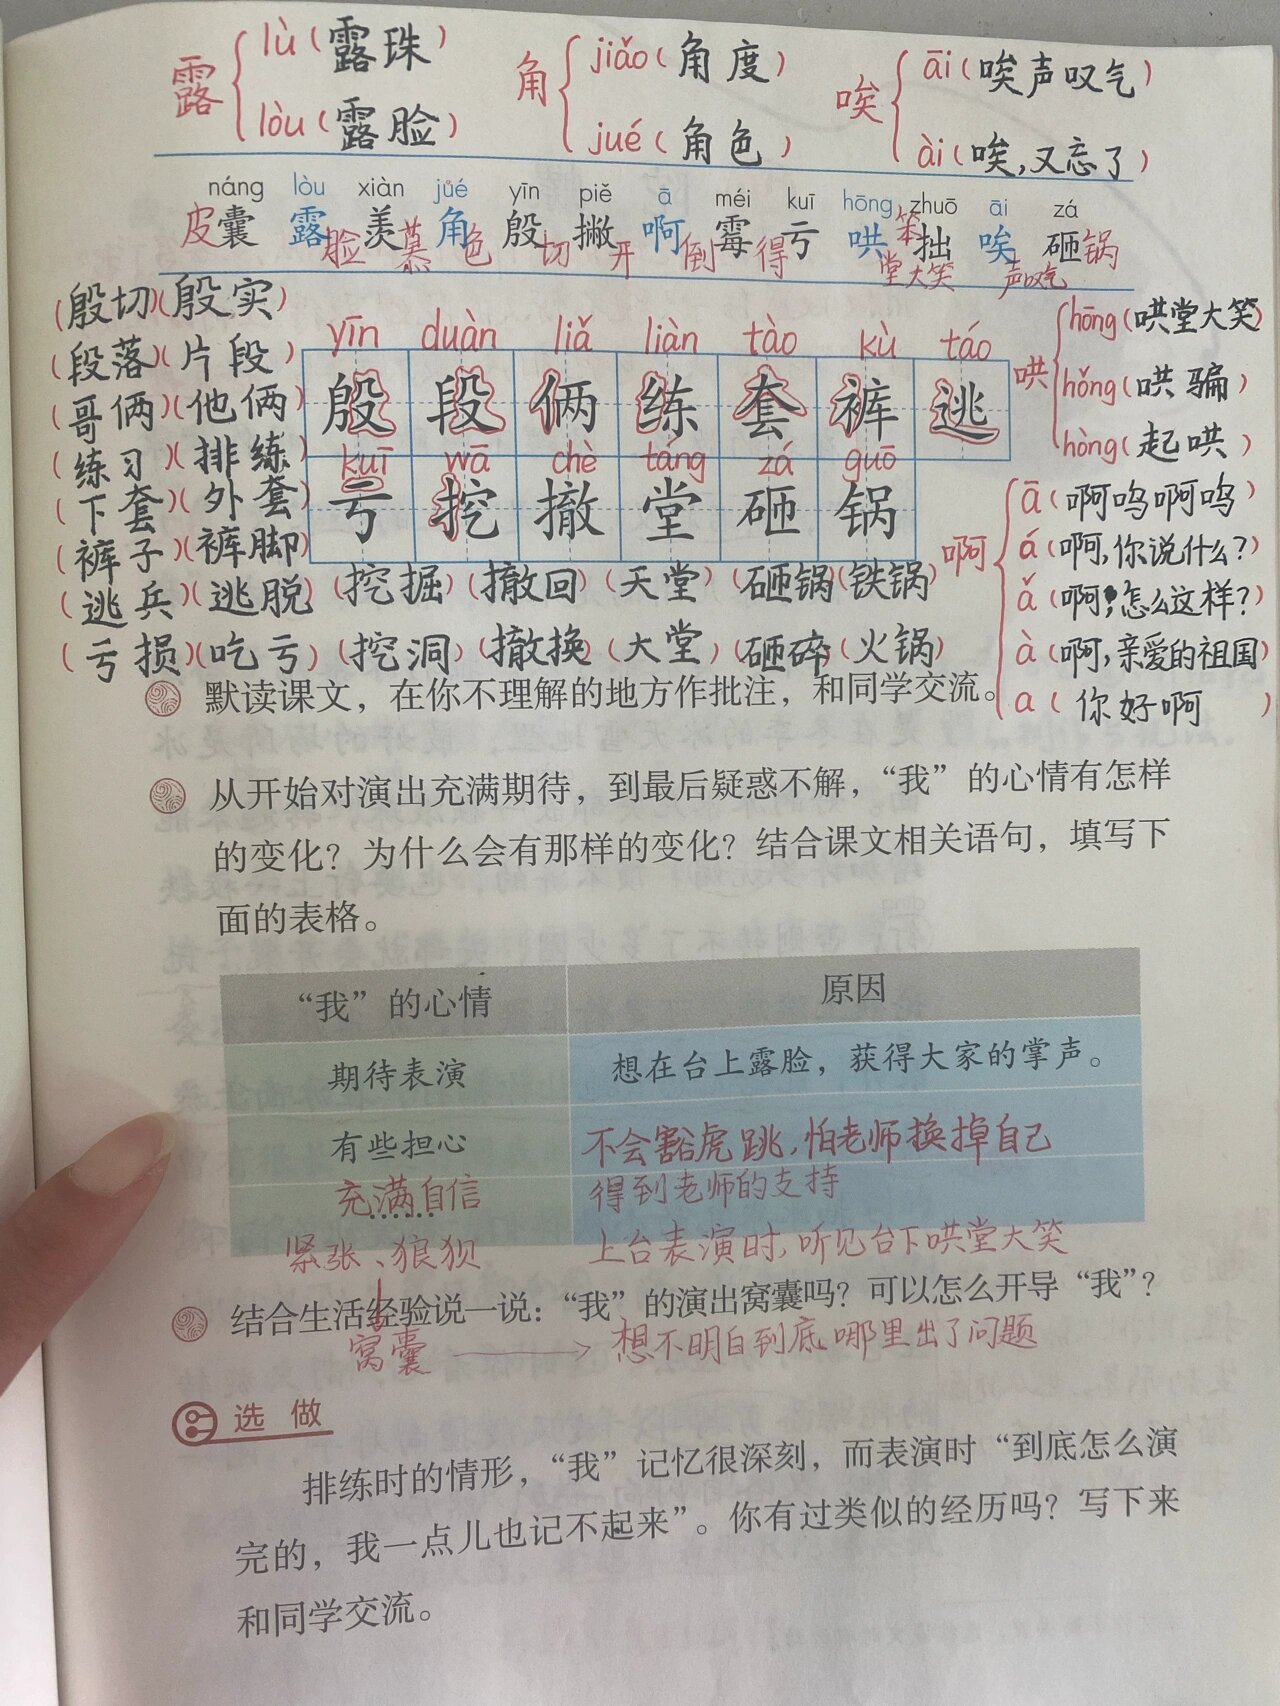 露 lù（露珠） lòu（露脸）
角 jiǎo（角度） jué（角色）
唉 āi（唉声叹气） ài（唉,又忘了）
náng lòu xiàn jué yīn piě ā méi kuī hōng zhuō āi zá
皮囊 露脸 羡慕 角色 殷切 撇开 啊 倒霉 亏得 哄堂大笑 笨拙 唉声叹气 砸锅
yīn duàn liǎ liàn tào kù táo
殷 段 俩 练 套 裤 逃
kuī wā chè táng zá guō
亏 挖 撤 堂 砸 锅
（殷切）（殷实）
（段落）（片段）
（哥俩）（他俩）
（练习）（排练）
（下套）（外套）
（裤子）（裤脚）
（逃兵）（逃脱）（挖掘）（撤回）（天堂）（砸锅）（铁锅）
（亏损）（吃亏）（挖洞）（撤换）（大堂）（砸碎）（火锅）
哄 hōng（哄堂大笑）
hǒng（哄骗）
hòng（起哄）
啊 ā（啊呜啊呜）
á（啊,你说什么?）
ǎ（啊,怎么这样?）
à（啊,亲爱的祖国）
a（你好啊）
默读课文，在你不理解的地方作批注，和同学交流。
从开始对演出充满期待，到最后疑惑不解，“我”的心情有怎样
的变化？为什么会有那样的变化？结合课文相关语句，填写下
面的表格。
“我”的心情 原因
期待表演 想在台上露脸，获得大家的掌声。
有些担心 不会豁虎跳,怕老师换掉自己
充满自信 得到老师的支持
……
紧张、狼狈 上台表演时,听见台下哄堂大笑
结合生活经验说一说：“我”的演出窝囊吗？可以怎么开导“我”？
窝囊 → 想不明白到底哪里出了问题
选做
排练时的情形，“我”记忆很深刻，而表演时“到底怎么演
完的，我一点儿也记不起来”。你有过类似的经历吗？写下来
和同学交流。